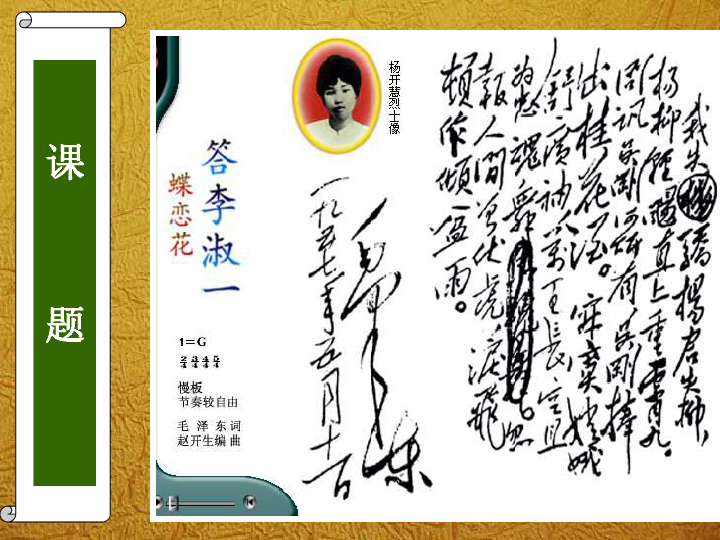 课题
杨开慧烈士像
答李淑一
蝶恋花
1=G
慢板
节奏较自由
毛 泽 东 词
赵开生编 曲
我失驕楊君失柳,
楊柳輕颺直上重霄九。
問訊吳剛何所有吳剛捧
出桂花酒。寂寞嫦娥
舒廣袖萬里長空且
為忠魂舞 忽
報人間曾伏虎淚飛
頓作傾盆雨。
毛泽东
一九五七年五月十一日